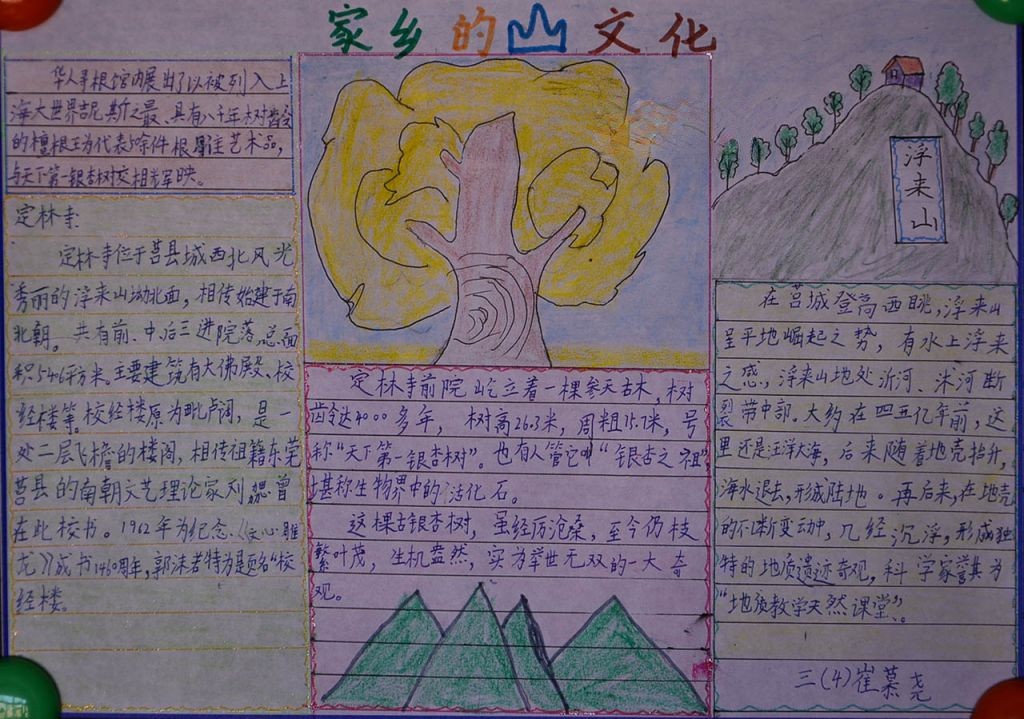 家乡的山文化
华人寻根馆内展出了以被列入上
海大世界吉尼斯之最、具有八千年树龄
的檀根王为代表 余件根 艺术品，
与天下第一银杏树交相辉映。
定林寺：
定林寺位于莒县城西北风光
秀丽的浮来山 北面，相传始建于南
北朝。共有前、中、后三进院落，总面
积5446平方米。主要建筑有大佛殿、校
经楼等。校经楼原为毗卢阁，是一
处二层飞檐的楼阁，相传祖籍东莞
莒县的南朝文艺理论家刘勰曾
在此校书。1962年为纪念《文心雕
龙》成书1460周年，郭沫若特为题名“校
经楼。
定林寺前院屹立着一棵参天古木，树
龄达4000多年，树高26.3米，周粗15.7米，号
称“天下第一银杏树”。也有人管它叫“银杏之祖”
堪称生物界中的“活化石。
这棵古银杏树，虽经历沧桑，至今仍枝
繁叶茂，生机盎然，实为举世无双的一大奇
观。
浮来山
在莒城登高西眺，浮来山
呈平地崛起之势，有水上浮来
之感。浮来山地处沂河、沭河断
裂带中部。大约在四五亿年前，这
里还是汪洋大海，后来随着地壳抬升，
海水退去，形成陆地。再后来，在地壳
的不断变动中，几经沉浮，形成独
特的地质遗迹奇观，科学家誉其为
“地质教学天然课堂”。
三(4)崔慕尧